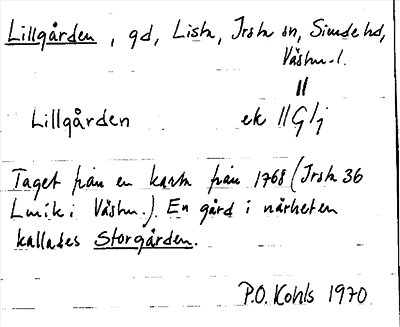 Lillgården, gd, Lista, Irsta sn, Siende hd,
Västm. l.
Lillgården ek //G/j
Taget från en karta från 1768 (Irsta 36
Lmlk i Västm.). En gård i närheten
kallades Storgården.
P.O. Kohls 1970